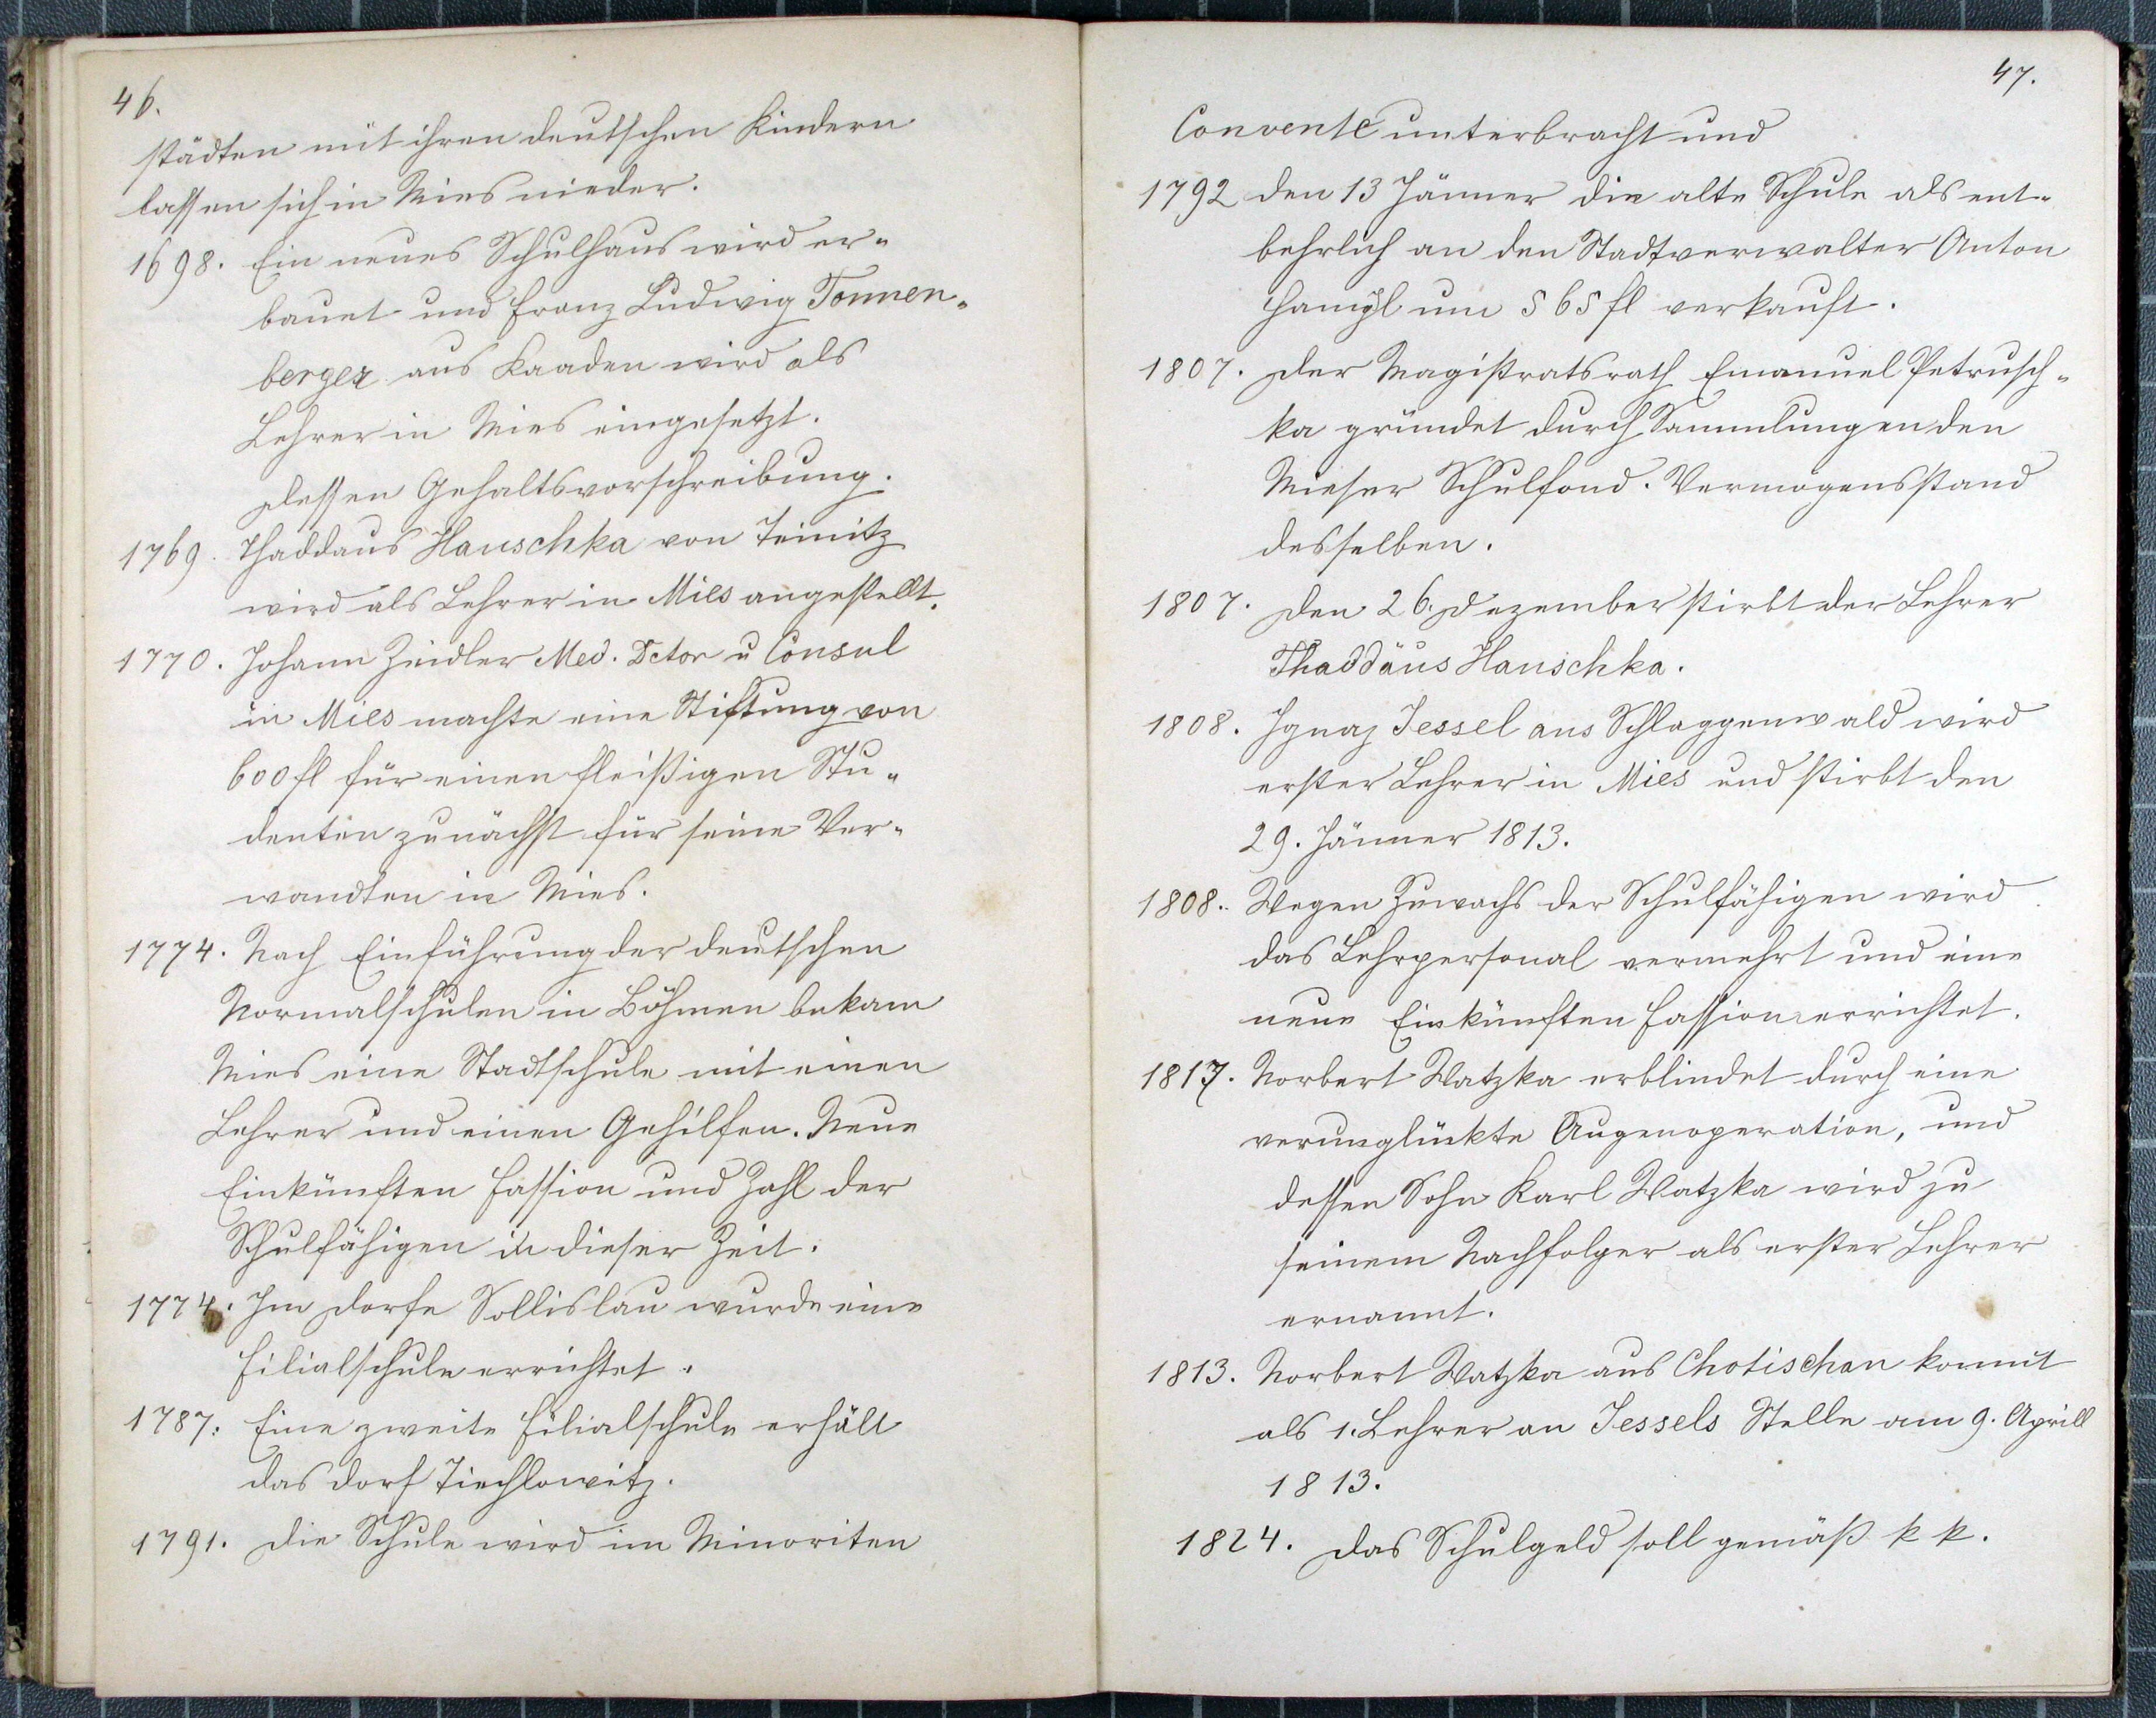 46.
städten mit ihren deutschen Kindern
lassen sich in Mies nieder.
1698. Ein neues Schulhaus wird er-
bauet und Franz Ludwig Tonnen-
berger aus Kaaden wird als
Lehrer in Mies eingesetzt.
Dessen Gehaltsvorschreibung.
1769. Thaddaus Hauschka von Teinitz
wird als Lehrer in Mies angestellt.
1770. Johann Zeidler Med. Dctor u Consul
in Mies machte eine Stiftung von
600 fl für einen fleißigen Stu-
denten zunächst für seine Ver-
wandten in Mies.
1774. Nach Einführung der deutschen
Normalschulen in Böhmen bekam
Mies eine Stadtschule mit einen
Lehrer und einen Gehilfen. Neue
Einkünften Fassion und Zahl der
Schulfähigen in dieser Zeit.
1774. Im Dorfe Sollislau wurde eine
Filialschule errichtet.
1787. Eine zweite Filialschule erhält
das Dorf Tiechlowitz.
1791. Die Schule wird im Minoriten
47.
Convente unterbracht und
1792 den 13 Jänner die alte Schule als ent-
behrlich an den Stadtverwalter Anton
um 565 fl verkauft.
1807. Der Magistratsrath Emanuel Petrusch-
ka gründet durch Sammlungen den
Mieser Schulfond. Vermögensstand
desselben.
1807. Den 26. Dezember stirbt der Lehrer
Thaddäus Hauschka.
1808. Ignaz Jessel aus Schlaggenwald wird
erster Lehrer in Mies und stirbt den
29. Jänner 1813.
1808. Wegen Zuwachs der Schulfähigen wird
das Lehrpersonal vermehrt und eine
neue Einkünften Fassion errichtet.
1817. Norbert Watzka erblindet durch eine
verunglückte Augenoperation, und
dessen Sohn Karl Watzka wird zu
seinem Nachfolger als erster Lehrer
ernannt.
1813. Norbert Watzka aus Chotischau kommt
als 1. Lehrer an Jessels Stelle am 9. Aprill
1813.
1824. Das Schulgeld soll gemäß k k.